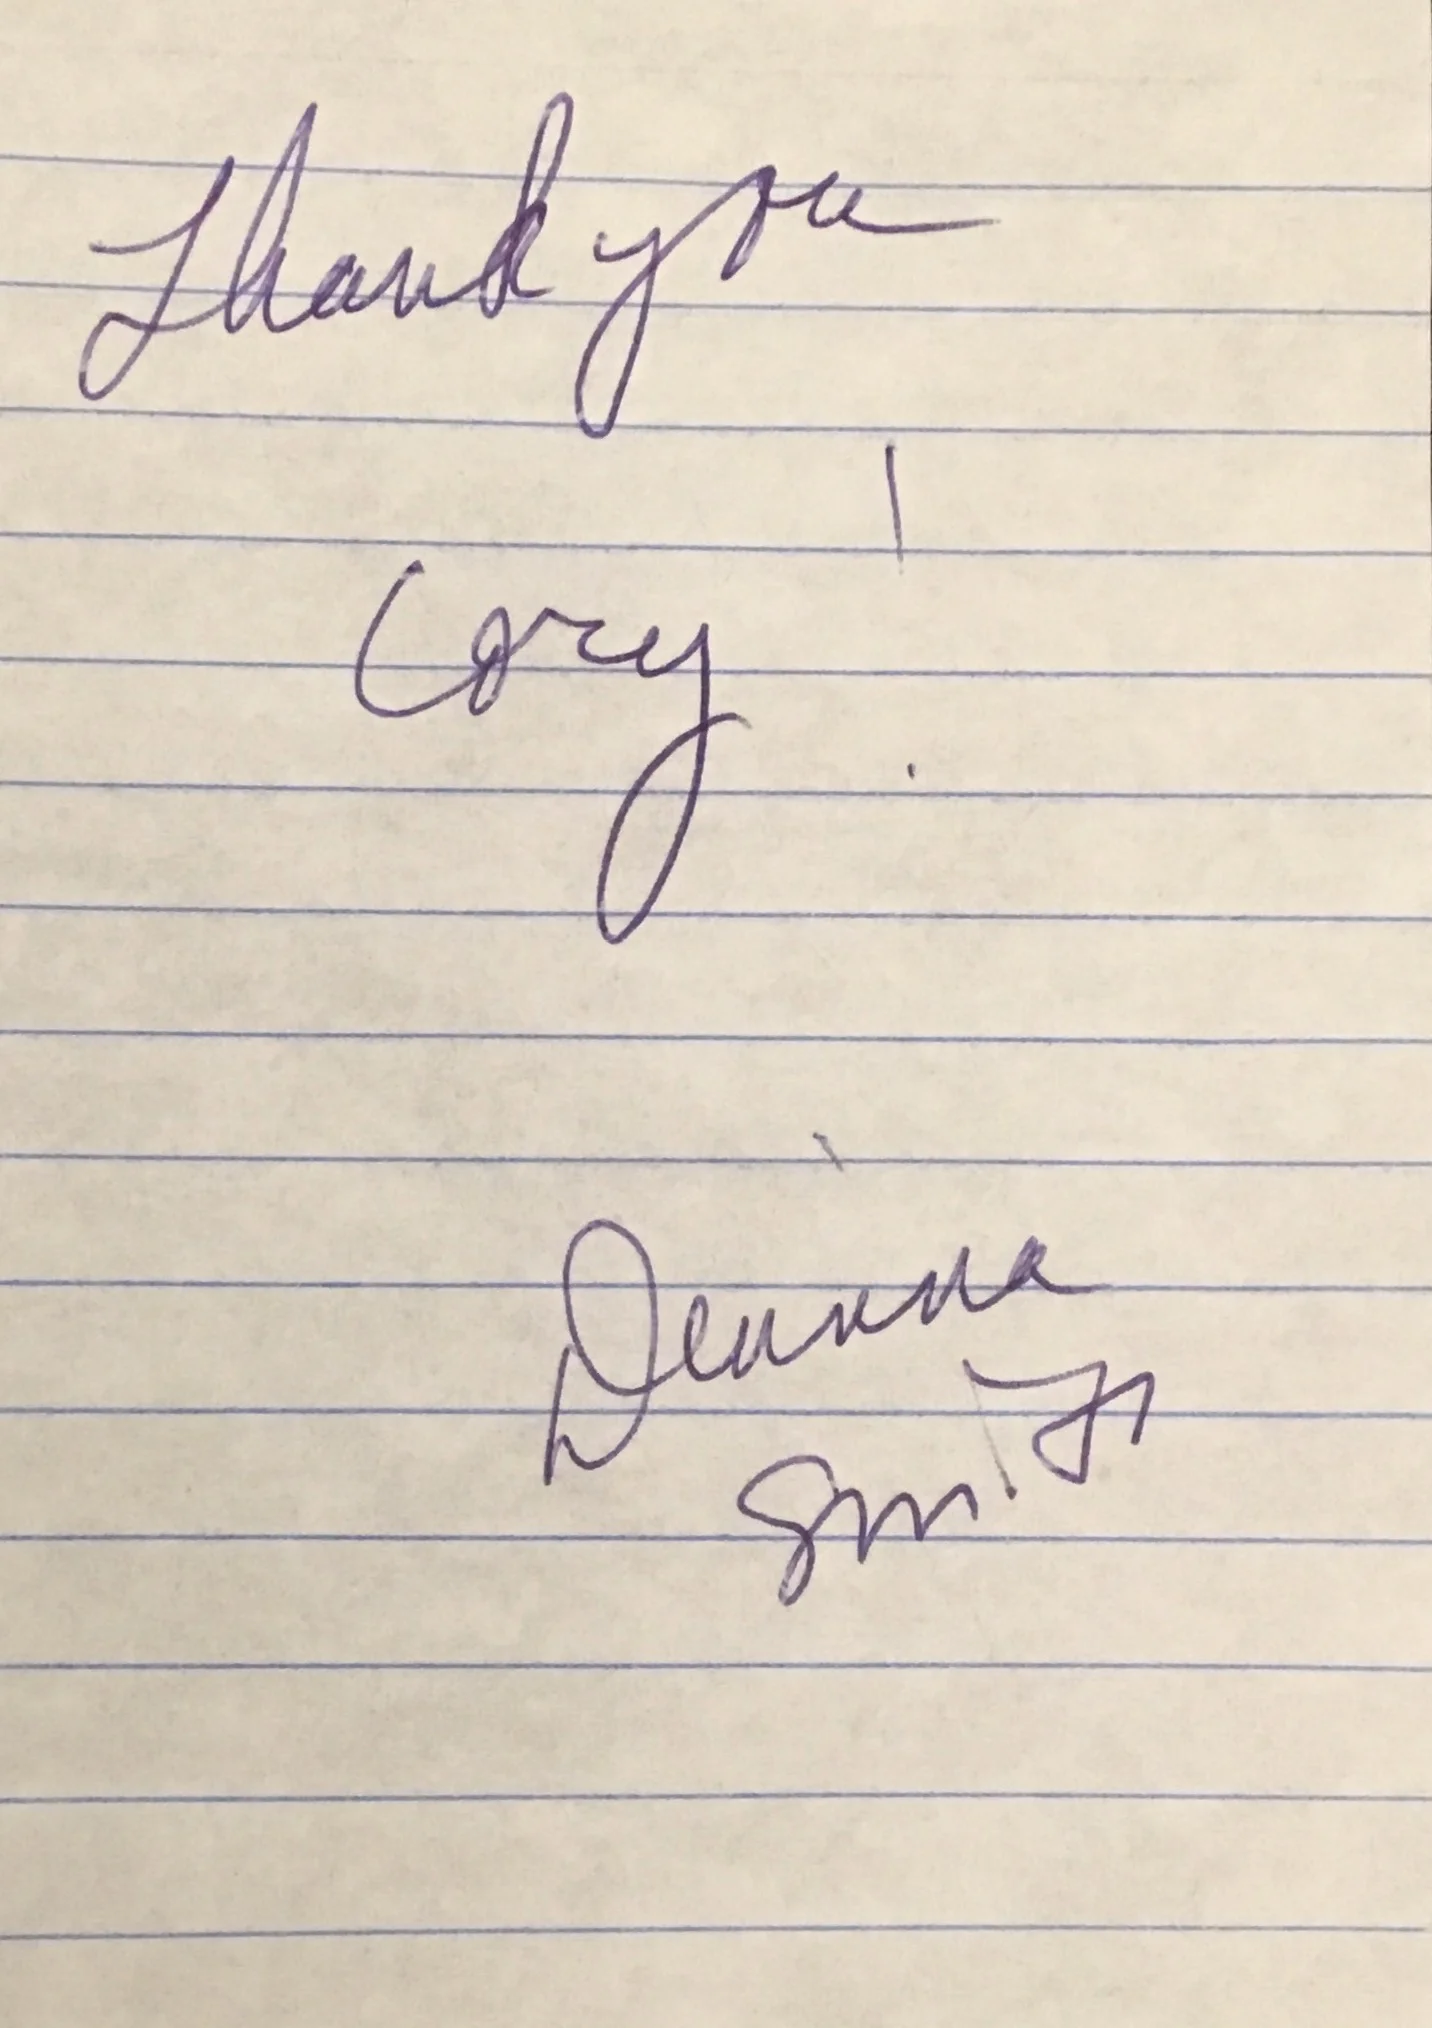 Thank you
Cory
Deanna
Smith